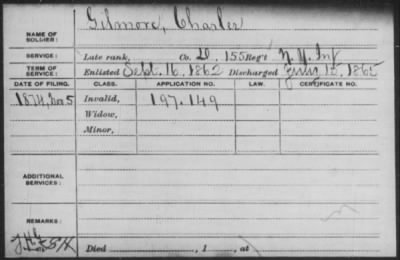 Gilmore, Charles
NAME OF SOLDIER:
SERVICE: Late rank, Co. D, 155 Reg't N. Y. Inf
TERM OF SERVICE: Enlisted Sept. 16, 1862 Discharged 15, 1865
DATE OF FILING. CLASS. APPLICATION NO. LAW. CERTIFICATE NO.
1874, 5 Invalid, 197.149
Widow,
Minor,
ADDITIONAL SERVICES:
REMARKS:
Died , 1 , at